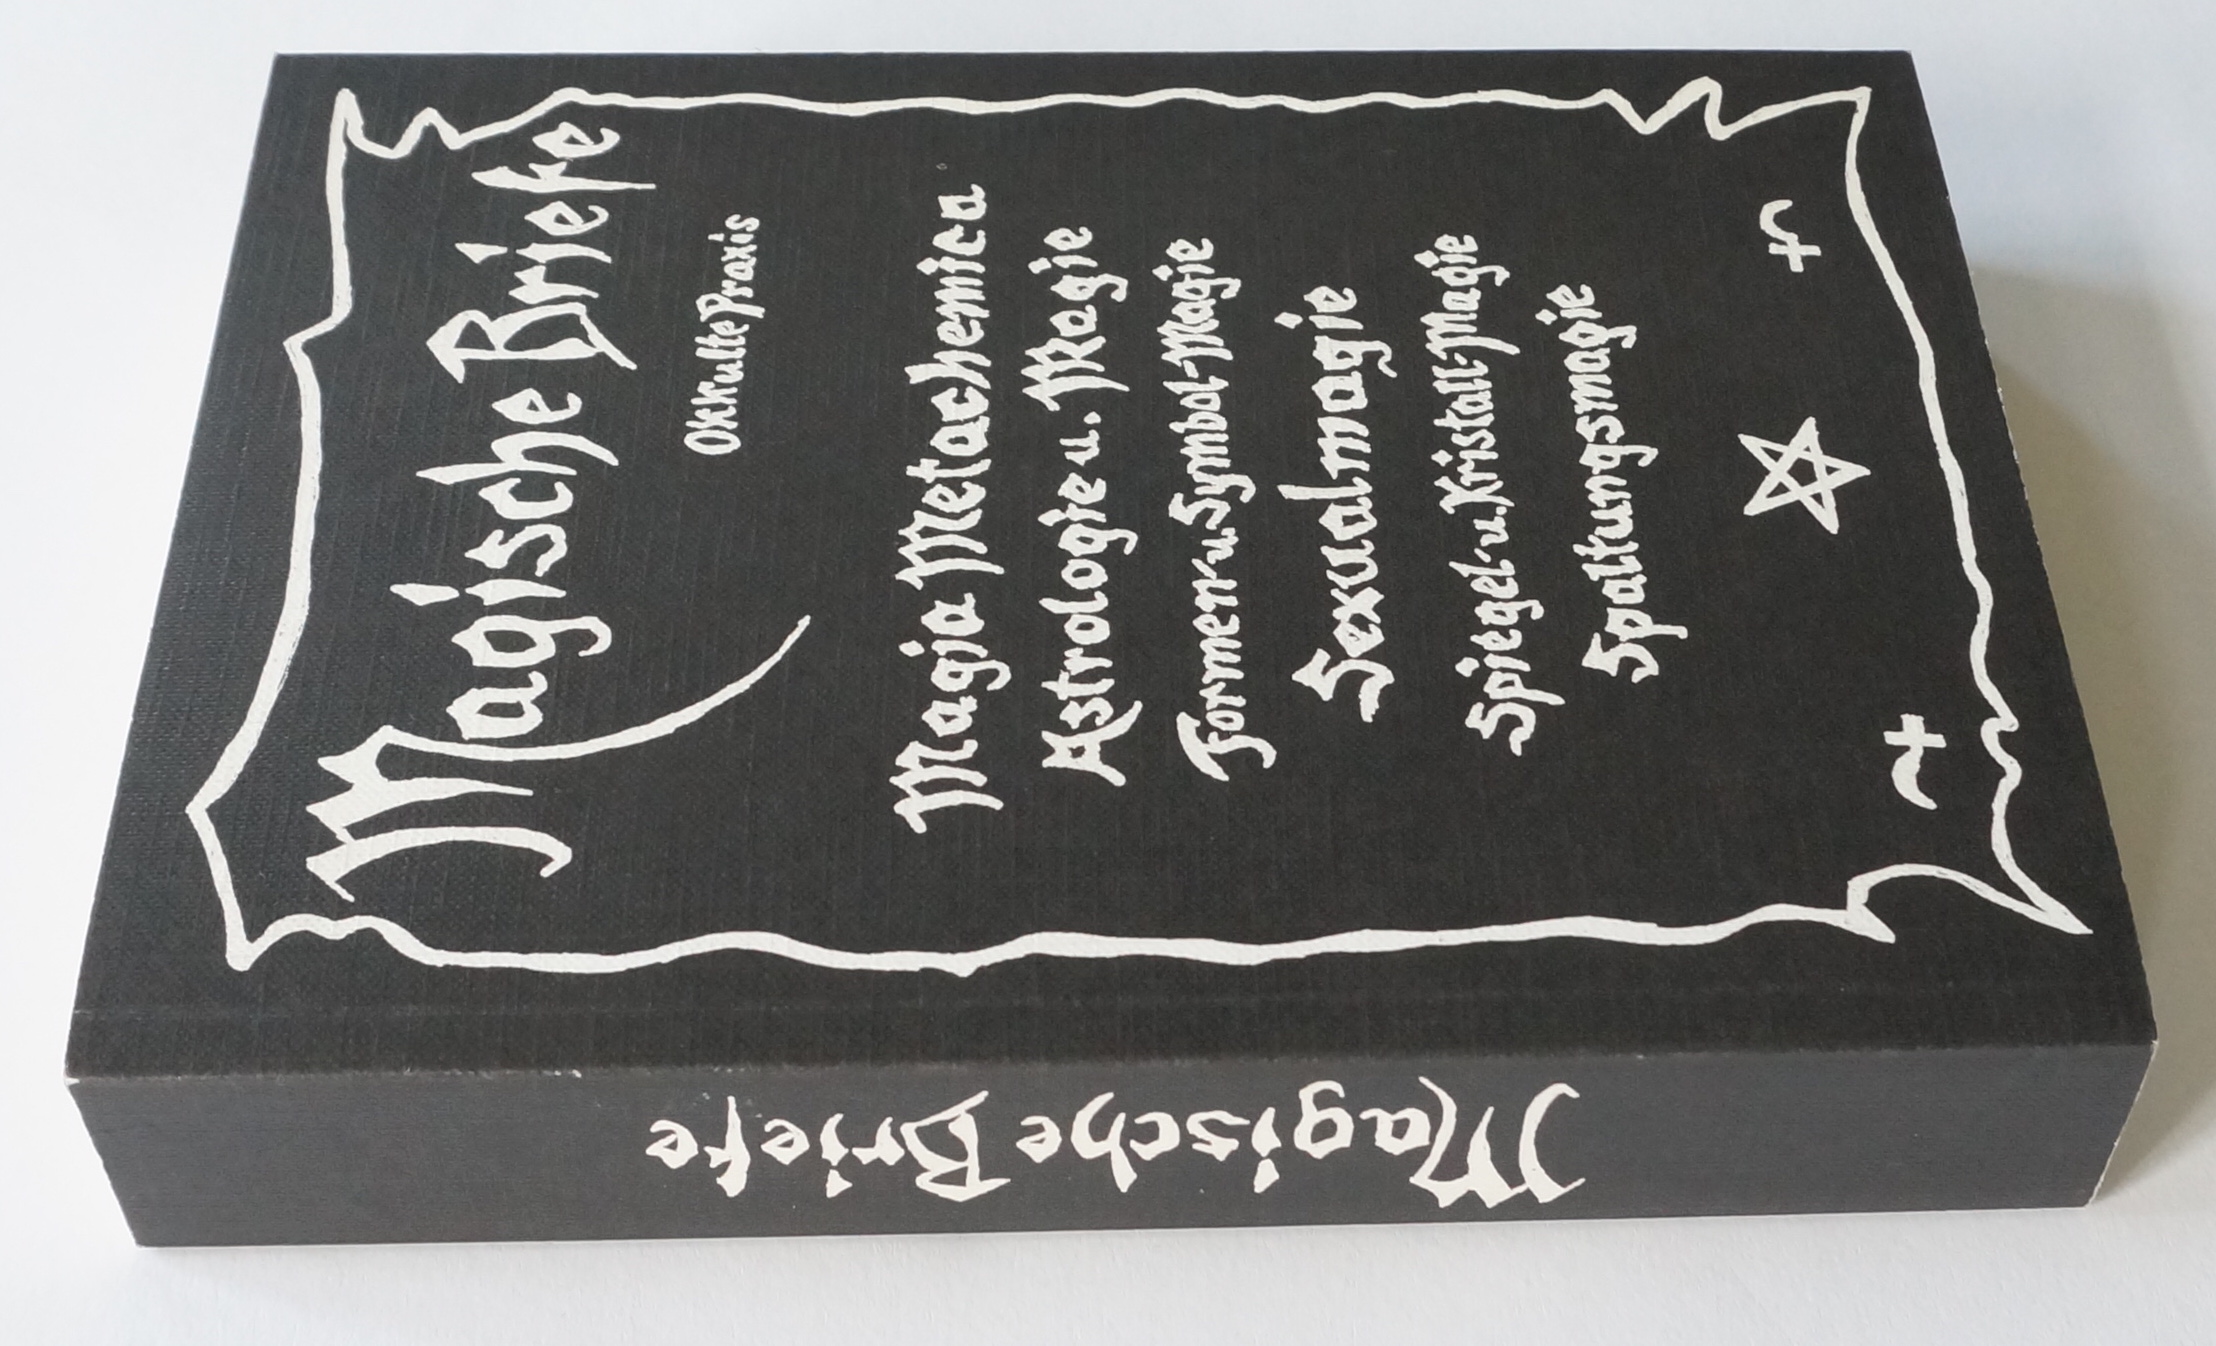 Magische Briefe
Okkulte Praxis
Magia Metachemica
Astrologie u. Magie
Formen- u. Symbol-Magie
Sexualmagie
Spiegel- u. Kristall-Magie
Spaltungsmagie
Magische Briefe